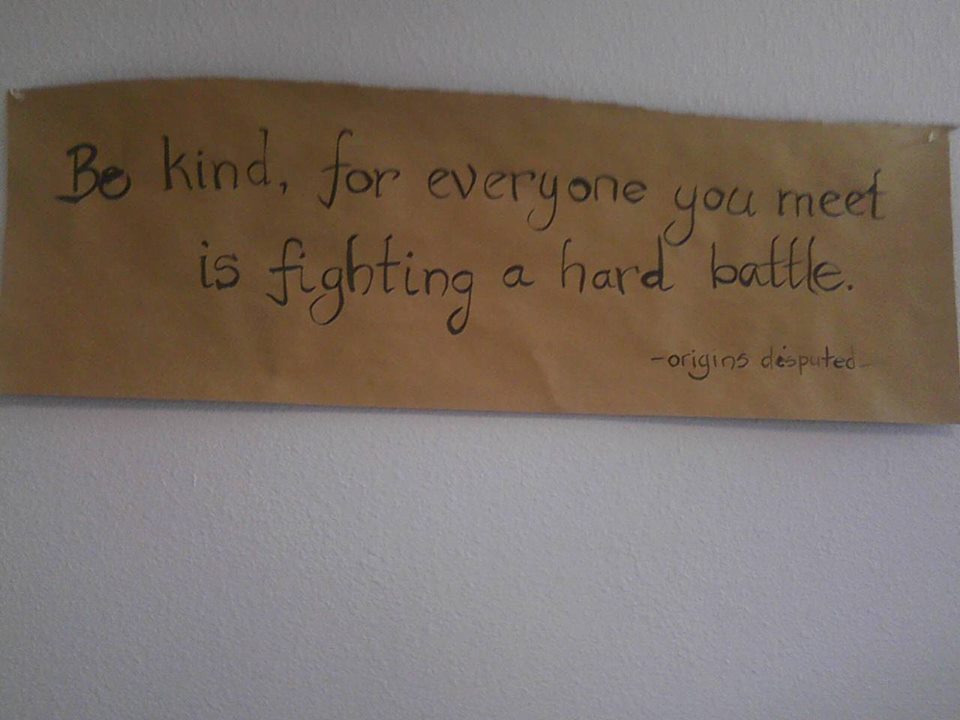 Be kind, for everyone you meet
is fighting a hard battle.
-origins disputed-